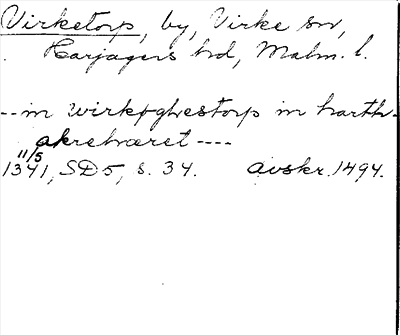 Virketorp, by, Virke sn,
Harjagers hd, Malm. l.
-- in wirkøghestorp in harth-
akrehæret ----
11/5
1341, SD 5, s. 34. avskr. 1494.